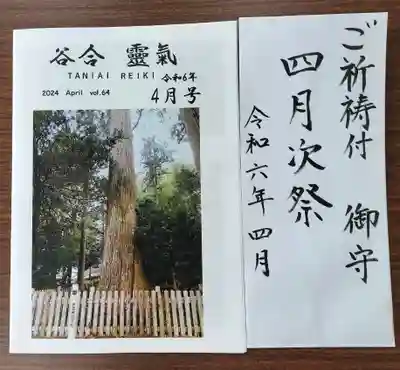 谷合 靈氣
TANIAI REIKI
令和6年
2024 April vol.64
4月号
ご祈祷付 御守
四月次祭
令和六年四月